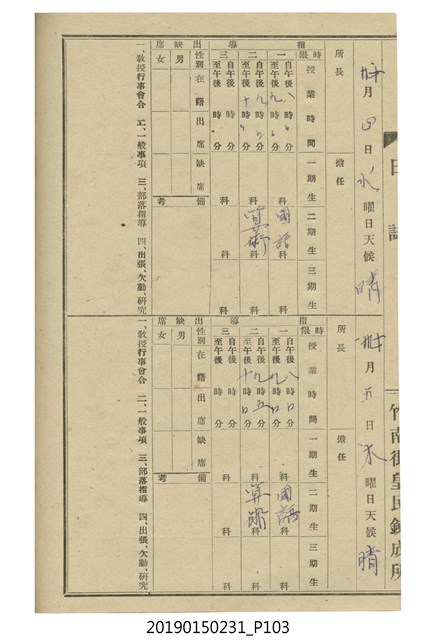 日誌
月 四 日 水 曜日 天候 晴
所長
擔任
時限 授業時間 一期生 二期生 三期生
指導
一 自午後 八 時 分 至午後 九 時 分 科 國語 科 科
二 自午後 九 時 分 至午後 十 時 分 科 算術 科 科
三 自午後 時 分 至午後 時 分 科 科 科
出缺席
性別 在籍 出席 缺席 備考
男
女
一、教授行事會合 二、一般事項 三、部落指導 四、出張、欠勤、研究
竹南街皇民鍊成所
月 五 日 木 曜日 天候 晴
所長
擔任
時限 授業時間 一期生 二期生 三期生
指導
一 自午後 八 時 分 至午後 九 時 分 科 國語 科 科
二 自午後 九 時 五 分 至午後 十 時 分 科 算術 科 科
三 自午後 時 分 至午後 時 分 科 科 科
出缺席
性別 在籍 出席 缺席 備考
男
女
一、教授行事會合 二、一般事項 三、部落指導 四、出張、欠勤、研究
20190150231_P103